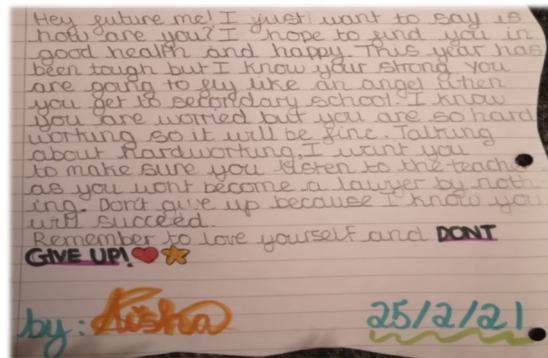 Hey future me! I just want to say is
how are you? I hope to find you in
good health and happy. This year has
been tough but I know your strong. You
are going to fly like an angel when
you get to secondary school. I know
you are worried but you are so hard
working so it will be fine. Talking
about hardworking, I want you
to make sure you listen to the teacher
as you wont become a lawyer by noth
ing. Don't give up because I know you
will succeed.
Remember to love yourself and DONT
GIVE UP!
by: Aisha
25/2/21